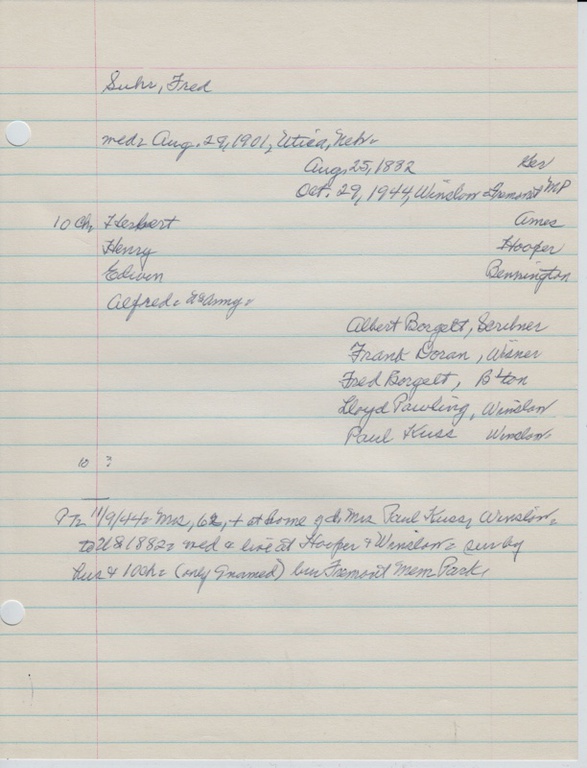 Suhr, Fred
med= Aug. 29, 1901, Utica, Nebr=
Aug. 25, 1882 Ger
Oct. 29, 1944, Winslow=Fremont MP
10 Ch, Herbert Ames
Henry Hooper
Edwin Bennington
Alfred= US Army=
Albert Borgelt, Scribner
Frank Doran, Wisner
Fred Borgelt, B'ton
Lloyd Pawling, Winslow
Paul Kuss Winslow=
10 ?
11/9/44= Mrs, 62, + at home of d, Mrs Paul Kuss, Winslow=
to US 1882= wed & live at Hooper & Winslow= sur by
hus & 10 Ch= (only 9 named) bur Fremont Mem Park,